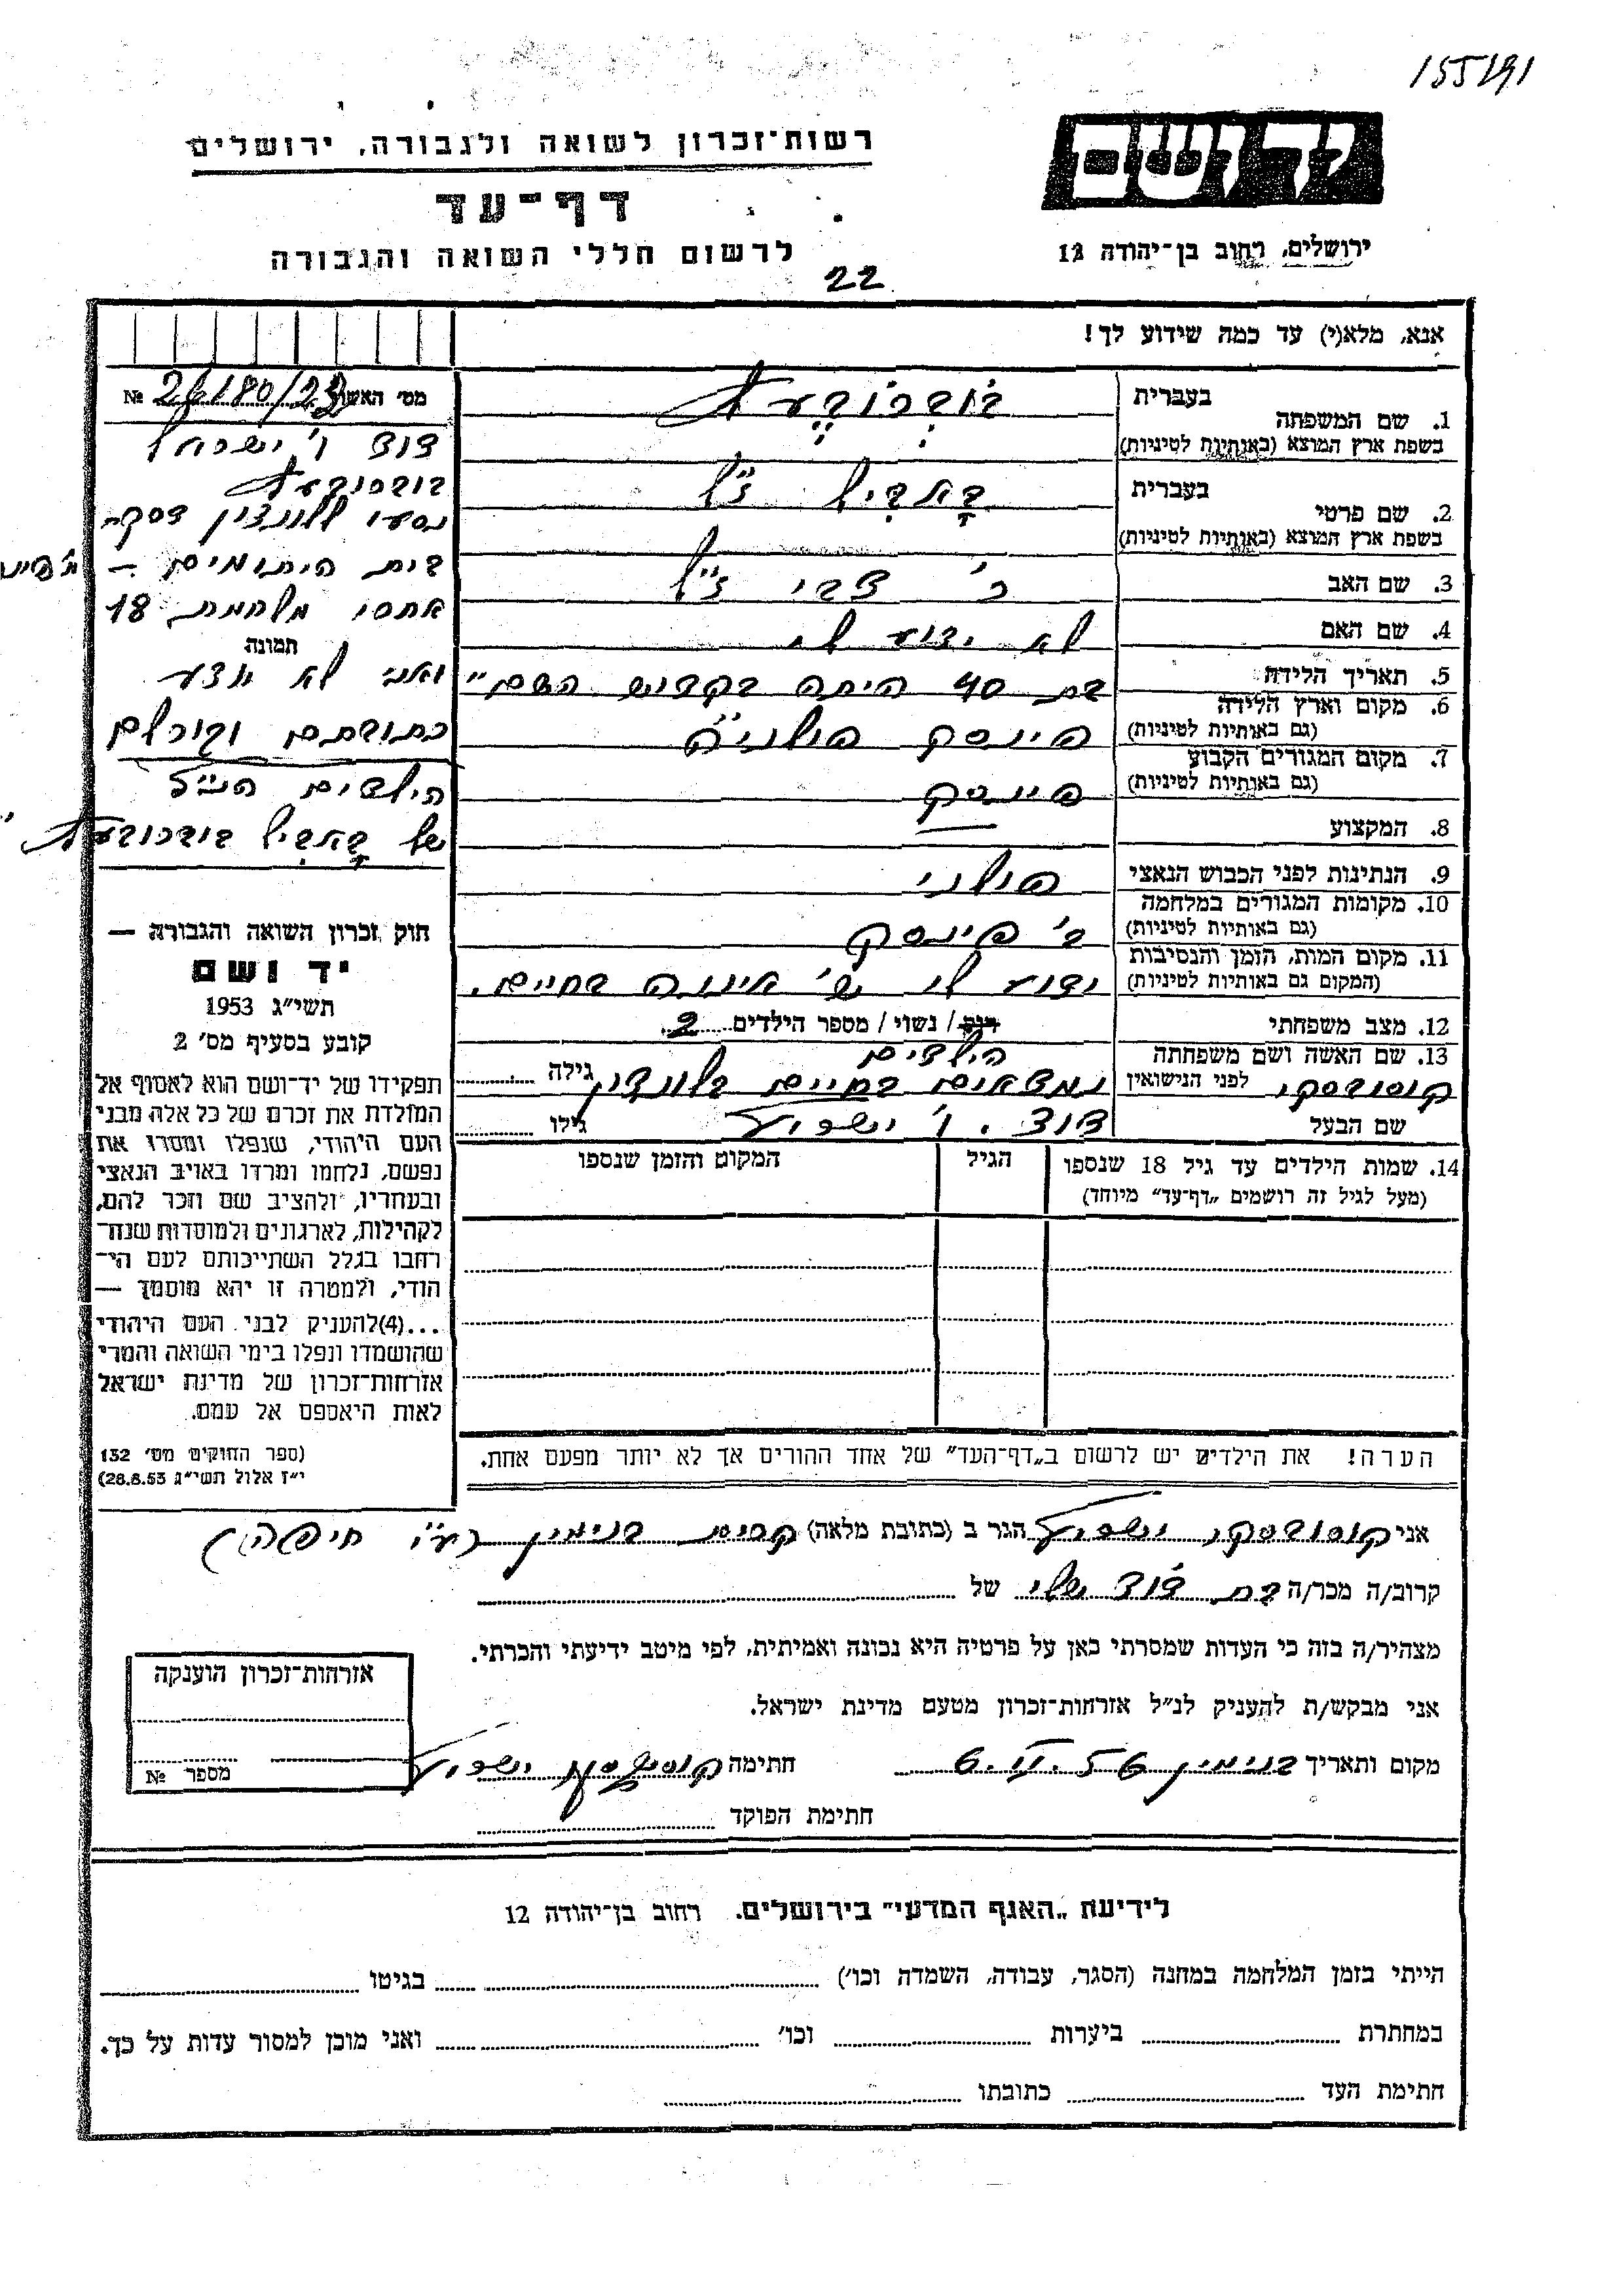 155191
יד ושם
רשות־זכרון לשואה ולגבורה, ירושלים
דף־עד
לרשום חללי השואה והגבורה
ירושלים, רחוב בן־יהודה 12
22
אנא, מלא(י) עד כמה שידוע לך!
1. שם המשפחה בעברית
בשפת ארץ המוצא (באותיות לטיניות)
2. שם פרטי בעברית
בשפת ארץ המוצא (באותיות לטיניות)
3. שם האב צבי ז"ל
4. שם האם לא ידוע לי
5. תאריך הלידה בת 40 היתה בקדוש השם"
6. מקום וארץ הלידה פינסק פולניה
(גם באותיות לטיניות)
7. מקום המגורים הקבוע פינסק
(גם באותיות לטיניות)
8. המקצוע —
9. הנתינות לפני הכבוש הנאצי פולני
10. מקומות המגורים במלחמה ב' פינסק
(גם באותיות לטיניות)
11. מקום המות, הזמן והנסיבות ידוע לי ש' איננה בחיים.
(המקום גם באותיות לטיניות)
12. מצב משפחתי רוק / נשוי / מספר הילדים 2
הילדים
13. שם האשה ושם משפחתה לפני הנישואין קוסובסקי נמצאים בחיים בלונדון גילה
שם הבעל דוד. ו' ישראל גילו
14. שמות הילדים עד גיל 18 שנספו הגיל המקום והזמן שנספו
(מעל לגיל זה רושמים „דף־עד" מיוחד)
הערה! את הילדים יש לרשום ב„דף־העד" של אחד ההורים אך לא יותר מפעם אחת.
מס' האשה № 26180/23
דוד ו' ישראל
נסעו ללונדון
בית היתומים —
אחרי מלחמת 18
תמונה
ואני לא יודע
כתובתם וגורלם
הילדים הנ"ל
של
חוק זכרון השואה והגבורה —
יד ושם
תשי״ג 1953
קובע בסעיף מס' 2
תפקידו של יד־ושם הוא לאסוף אל
המולדת את זכרם של כל אלה מבני
העם היהודי, שנפלו ומסרו את
נפשם, נלחמו ומרדו באויב הנאצי
ובעוזריו, ולהציב שם וזכר להם,
לקהילות, לארגונים ולמוסדות שנח־
רבו בגלל השתייכותם לעם הי־
הודי, ולמטרה זו יהא מוסמך —
...(4) להעניק לבני העם היהודי
שהושמדו ונפלו בימי השואה והמרי
אזרחות־זכרון של מדינת ישראל
לאות היאספם אל עמם.
(ספר החוקים מס' 132
י״ז אלול תשי״ג 28.8.53)
אני קוסובסקי ישראל הגר ב (כתובת מלאה) קרית בנימין (ע"י חיפה)
קרוב/ה מכר/ה בת דוד שלי של
מצהיר/ה בזה כי העדות שמסרתי כאן על פרטיה היא נכונה ואמיתית, לפי מיטב ידיעתי והכרתי.
אני מבקש/ת להעניק לנ״ל אזרחות־זכרון מטעם מדינת ישראל.
מקום ותאריך בנימין 6.II.56 חתימה קוסובסקי ישראל
חתימת הפוקד
אזרחות־זכרון הוענקה
מספר №
לידיעת „האגף המדעי" בירושלים. רחוב בן־יהודה 12
הייתי בזמן המלחמה במחנה (הסגר, עבודה, השמדה וכו') בגיטו
במחתרת ביערות וכו' ואני מוכן למסור עדות על כך.
חתימת העד כתובתו